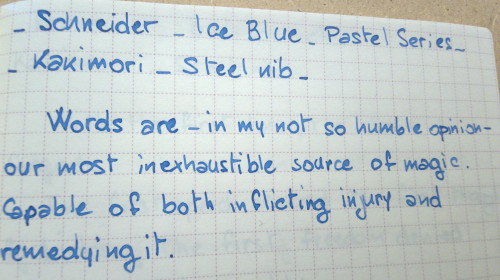 - Schneider - Ice Blue - Pastel Series -
- Kakimori - Steel nib -
Words are - in my not so humble opinion -
our most inexhaustible source of magic.
Capable of both inflicting injury and
remedying it.